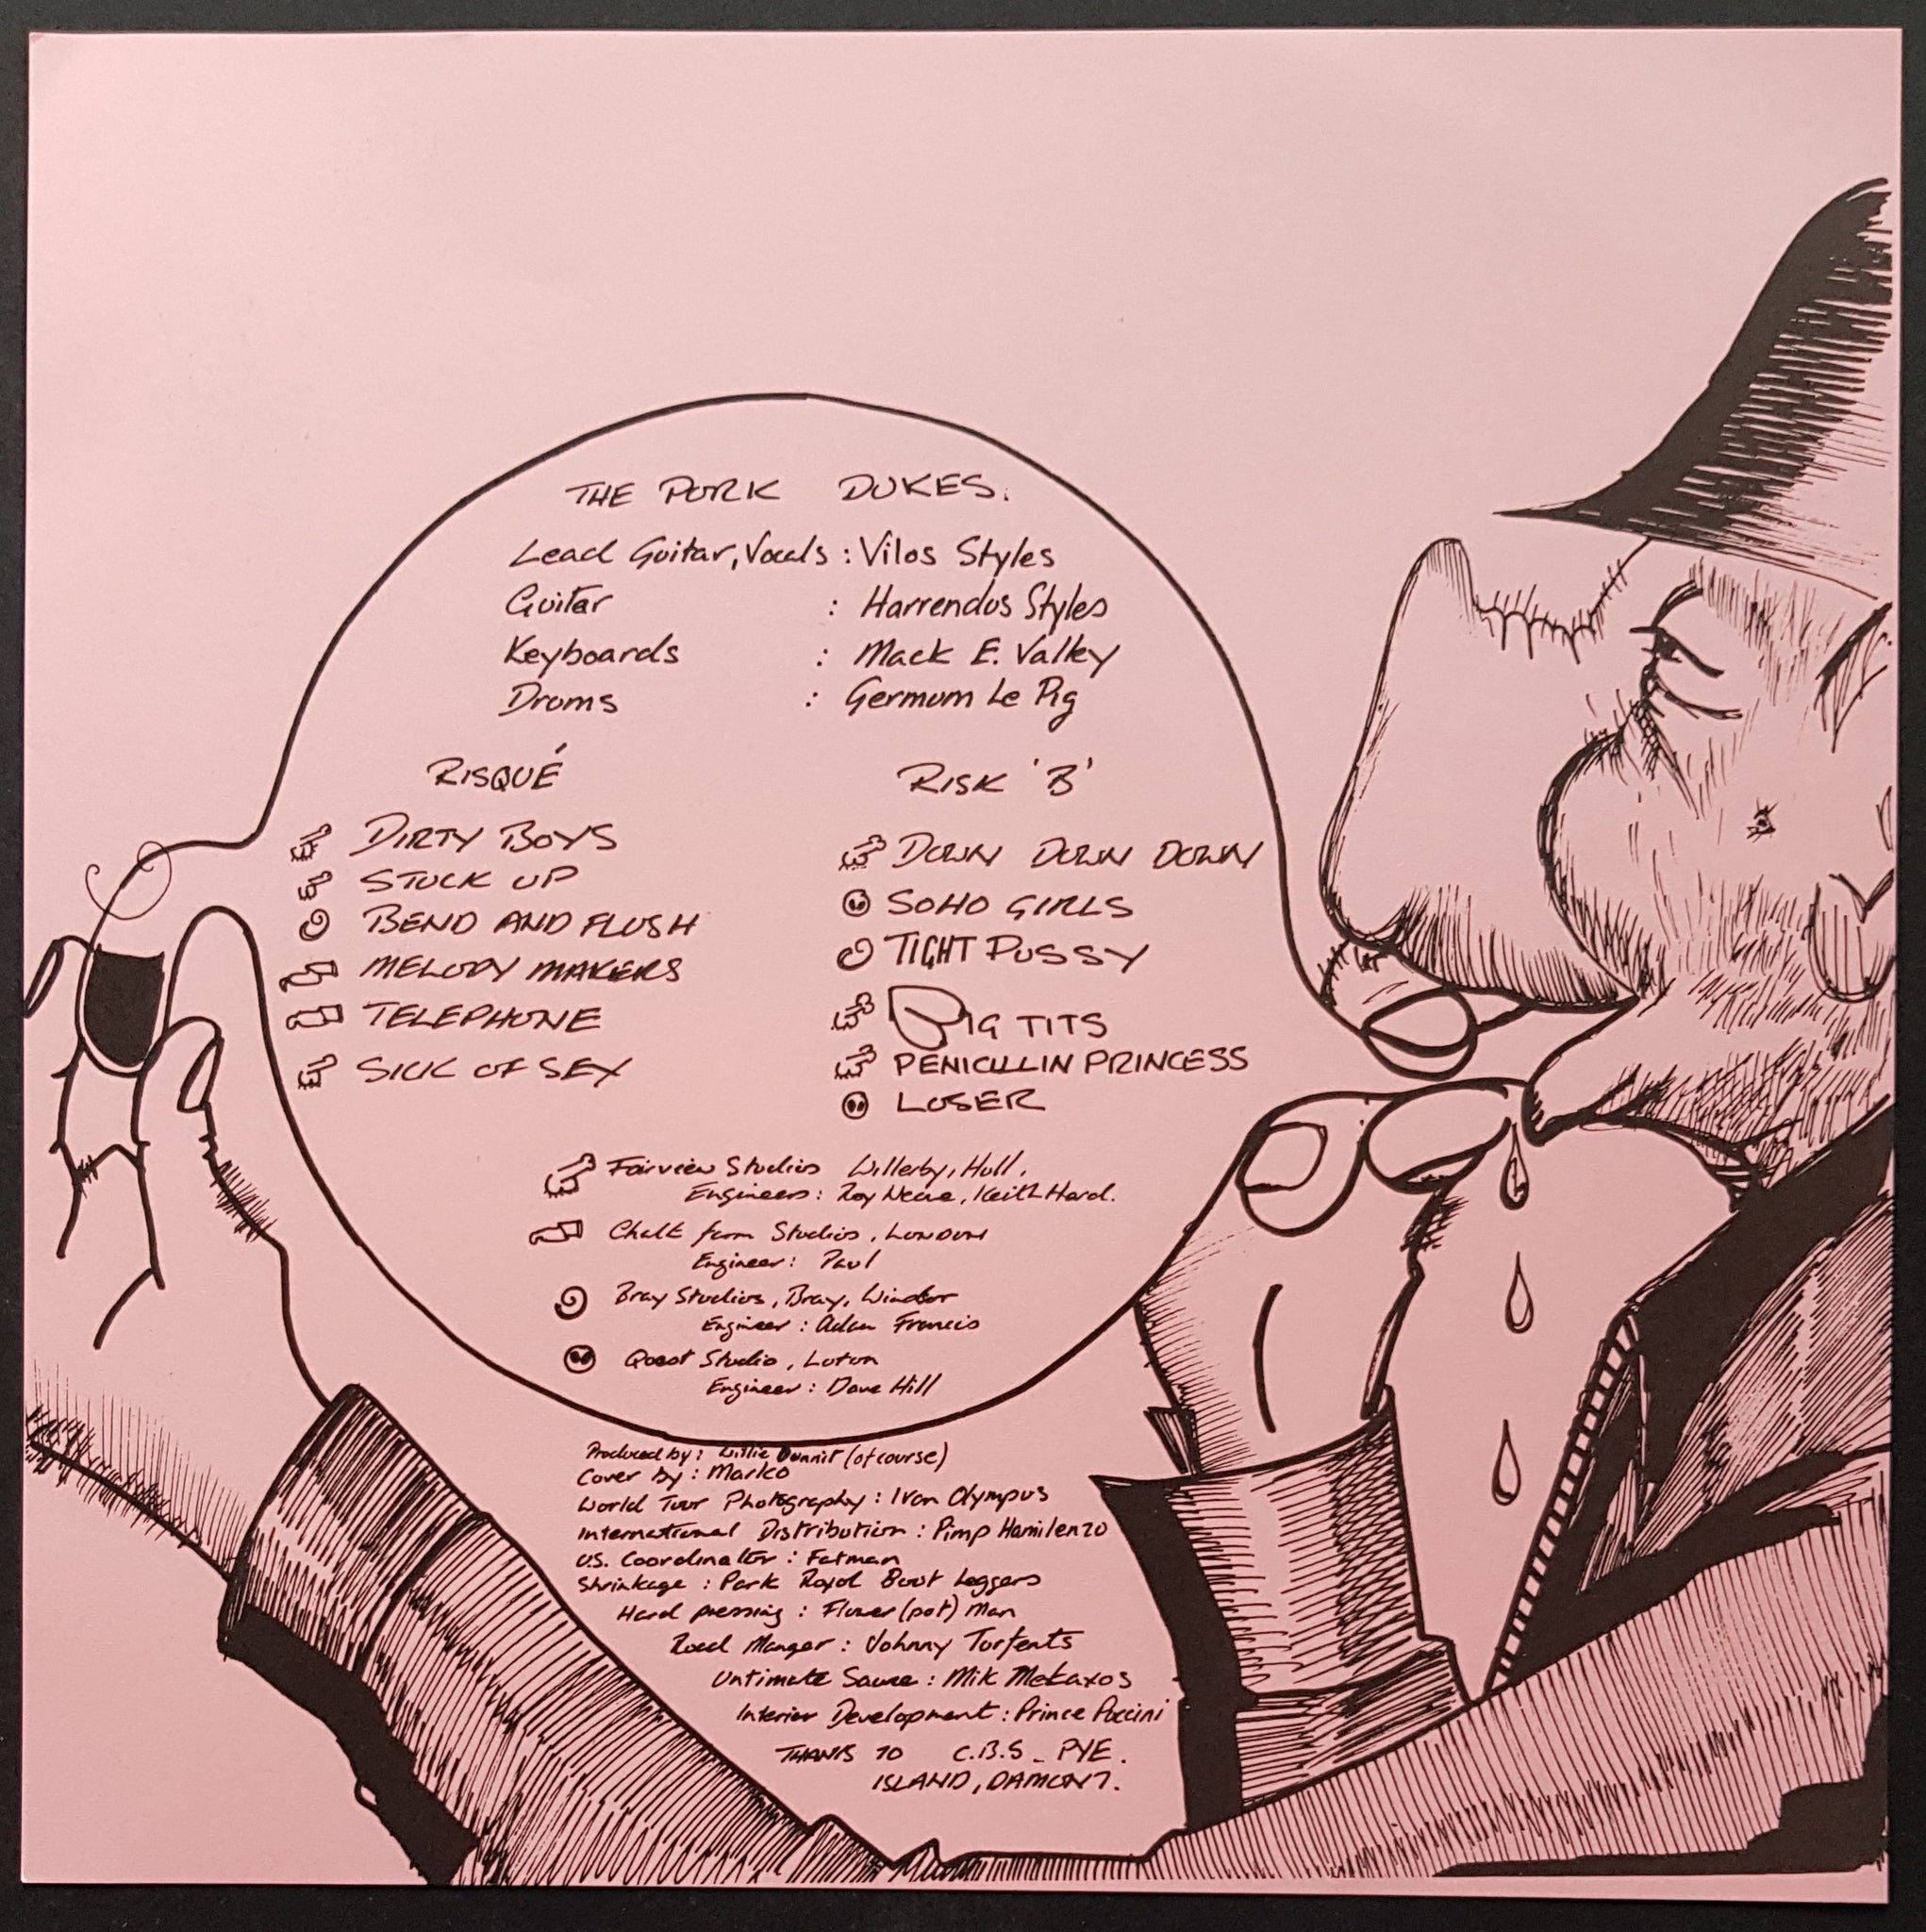 THE PORK DUKES.
Lead Guitar, Vocals : Vilos Styles
Guitar : Harrendus Styles
Keyboards : Mack E. Valley
Drums : Germum Le Pig
RISQUÉ
DIRTY BOYS
STUCK UP
BEND AND FLUSH
MELODY MAKERS
TELEPHONE
SICK OF SEX
RISK 'B'
DOWN DOWN DOWN
SOHO GIRLS
TIGHT PUSSY
PIG TITS
PENICILLIN PRINCESS
LOSER
Fairview Studios Willerby, Hull.
Engineers: Roy Neave, Keith Herd.
Chalk farm Studios, LONDON
Engineer: Paul
Bray Studios, Bray, Windsor
Engineer: Adam Francis
Quest Studio, Luton
Engineer: Dave Hill
Produced by: Willie Dunnit (of course)
Cover by: Marko
World Tour Photography: Ivon Olympus
International Distribution: Pimp Hamilenzo
U.S. Coordinator: Fatman
Shrinkage: Park Royal Boot Leggers
Hard pressing: Flower (pot) Man
Road Manger: Johnny Turfents
Untimate Sauce: Mik Metaxos
Interior Development: Prince Puccini
THANKS TO C.B.S - PYE.
ISLAND, DAMONT.